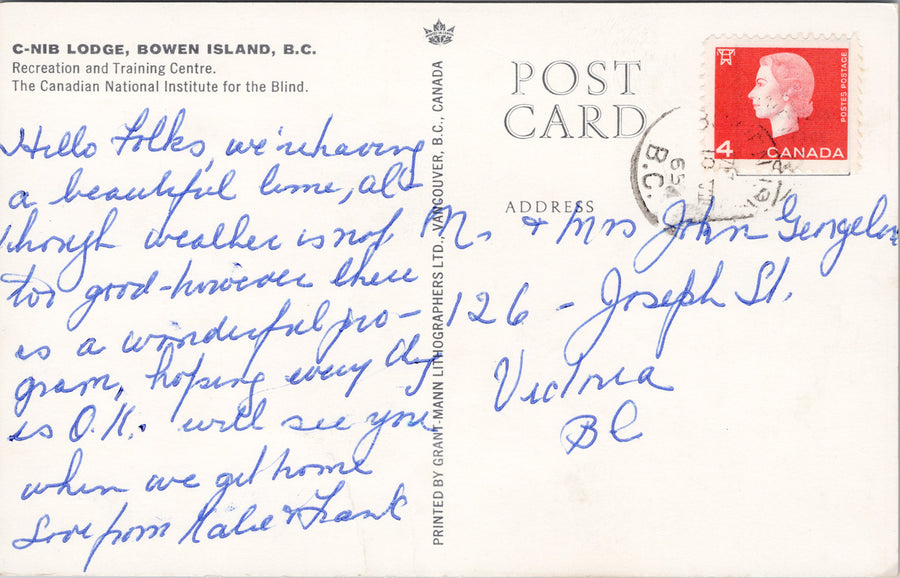 C-NIB LODGE, BOWEN ISLAND, B.C.
Recreation and Training Centre.
The Canadian National Institute for the Blind.
Hello Folks, we're having
a beautiful time, al-
though weather is not
too good - however there
is a wonderful pro-
gram, hoping every thg
is O.K. will see you
when we get home
Love from Katie & Frank
PRINTED BY GRANT-MANN LITHOGRAPHERS LTD., VANCOUVER, B.C., CANADA
POST
CARD
ADDRESS
4 CANADA
POSTES POSTAGE
B.C.
65
Mr. & Mrs John
126 - Joseph St.
Victoria
BC